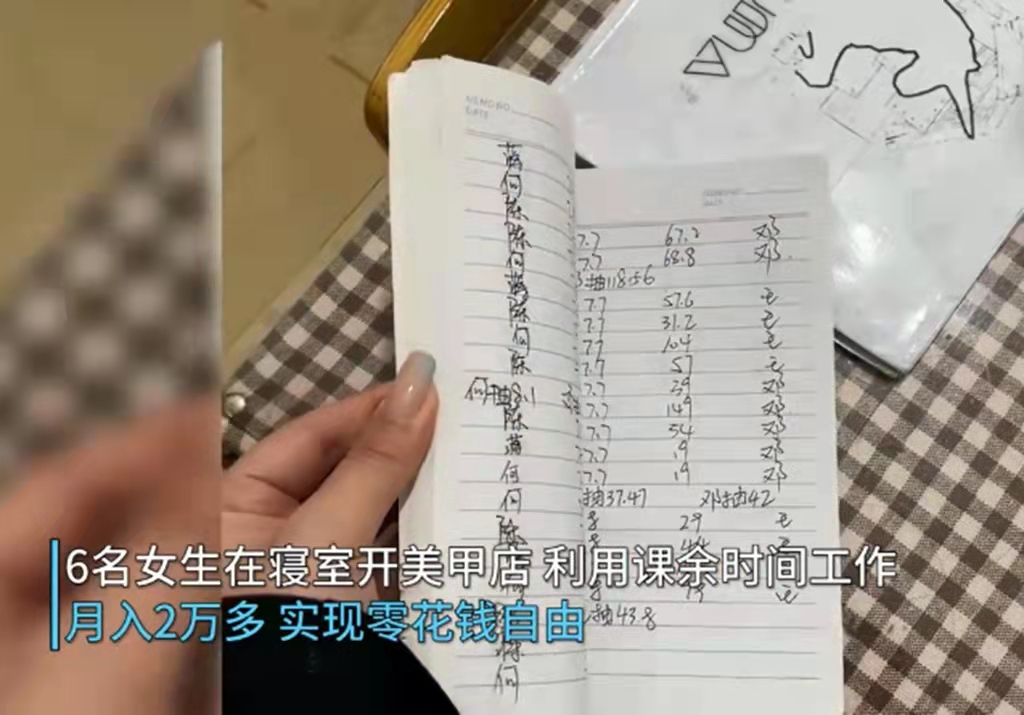 MEMO NO.
DATE
蒋
何
陈
陈
何
蒋
陈
何
陈
何抽8.1
陈
蒋
何
何
陈
何
7.7 67.2 邓
7.7 68.8 邓
抽118.56
7.7 57.6 毛
7.7 31.2 毛
7.7 104 毛
7.7 57 毛
7.7 39 邓
7.7 149 邓
7.7 54 邓
7.7 19 邓
7.7 19 邓
抽37.47 邓抽42
29 毛
抽43.8
6名女生在寝室开美甲店 利用课余时间工作
月入2万多 实现零花钱自由